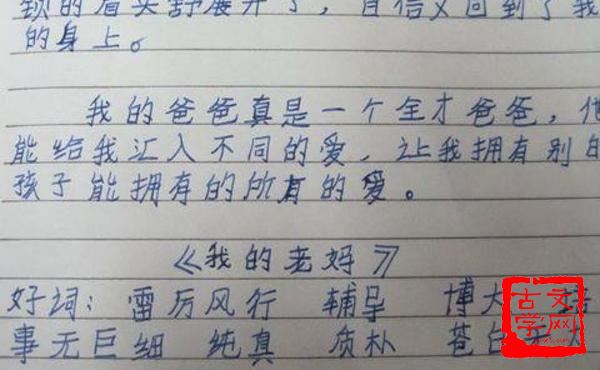 锁的眉头舒展开了，自信又回到了我
的身上。
我的爸爸真是一个全才爸爸，他
能给我汇入不同的爱，让我拥有别的
孩子能拥有的所有的爱。
《我的老妈》
好词：雷厉风行 辅导 博大
事无巨细 纯真 质朴 苍白无力
古文学网